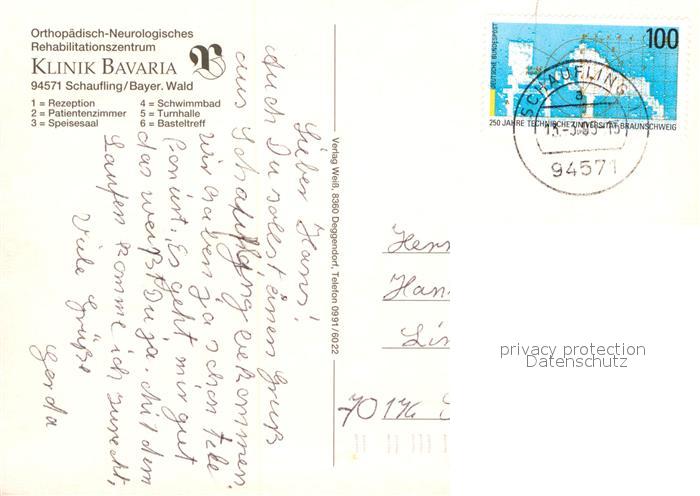 Orthopädisch-Neurologisches
Rehabilitationszentrum
KLINIK BAVARIA
94571 Schaufling/Bayer. Wald
1 = Rezeption
2 = Patientenzimmer
3 = Speisesaal
4 = Schwimmbad
5 = Turnhalle
6 = Basteltreff
Lieber Hans!
Auch Du sollst einen Gruß
aus Schaufling bekommen.
wir haben ja schon tele
foniert. Es geht mir gut
das weißt Du ja. Mit dem
Laufen komme ich zurecht,
Viele Grüße
Gerda
Verlag Weiß, 8360 Deggendorf, Telefon 0991/6022
DEUTSCHE BUNDESPOST
100
250 JAHRE TECHNISCHE UNIVERSITÄT BRAUNSCHWEIG
SCHAUFLING 1
a
94571
Herr
Han
Lin
privacy protection
Datenschutz